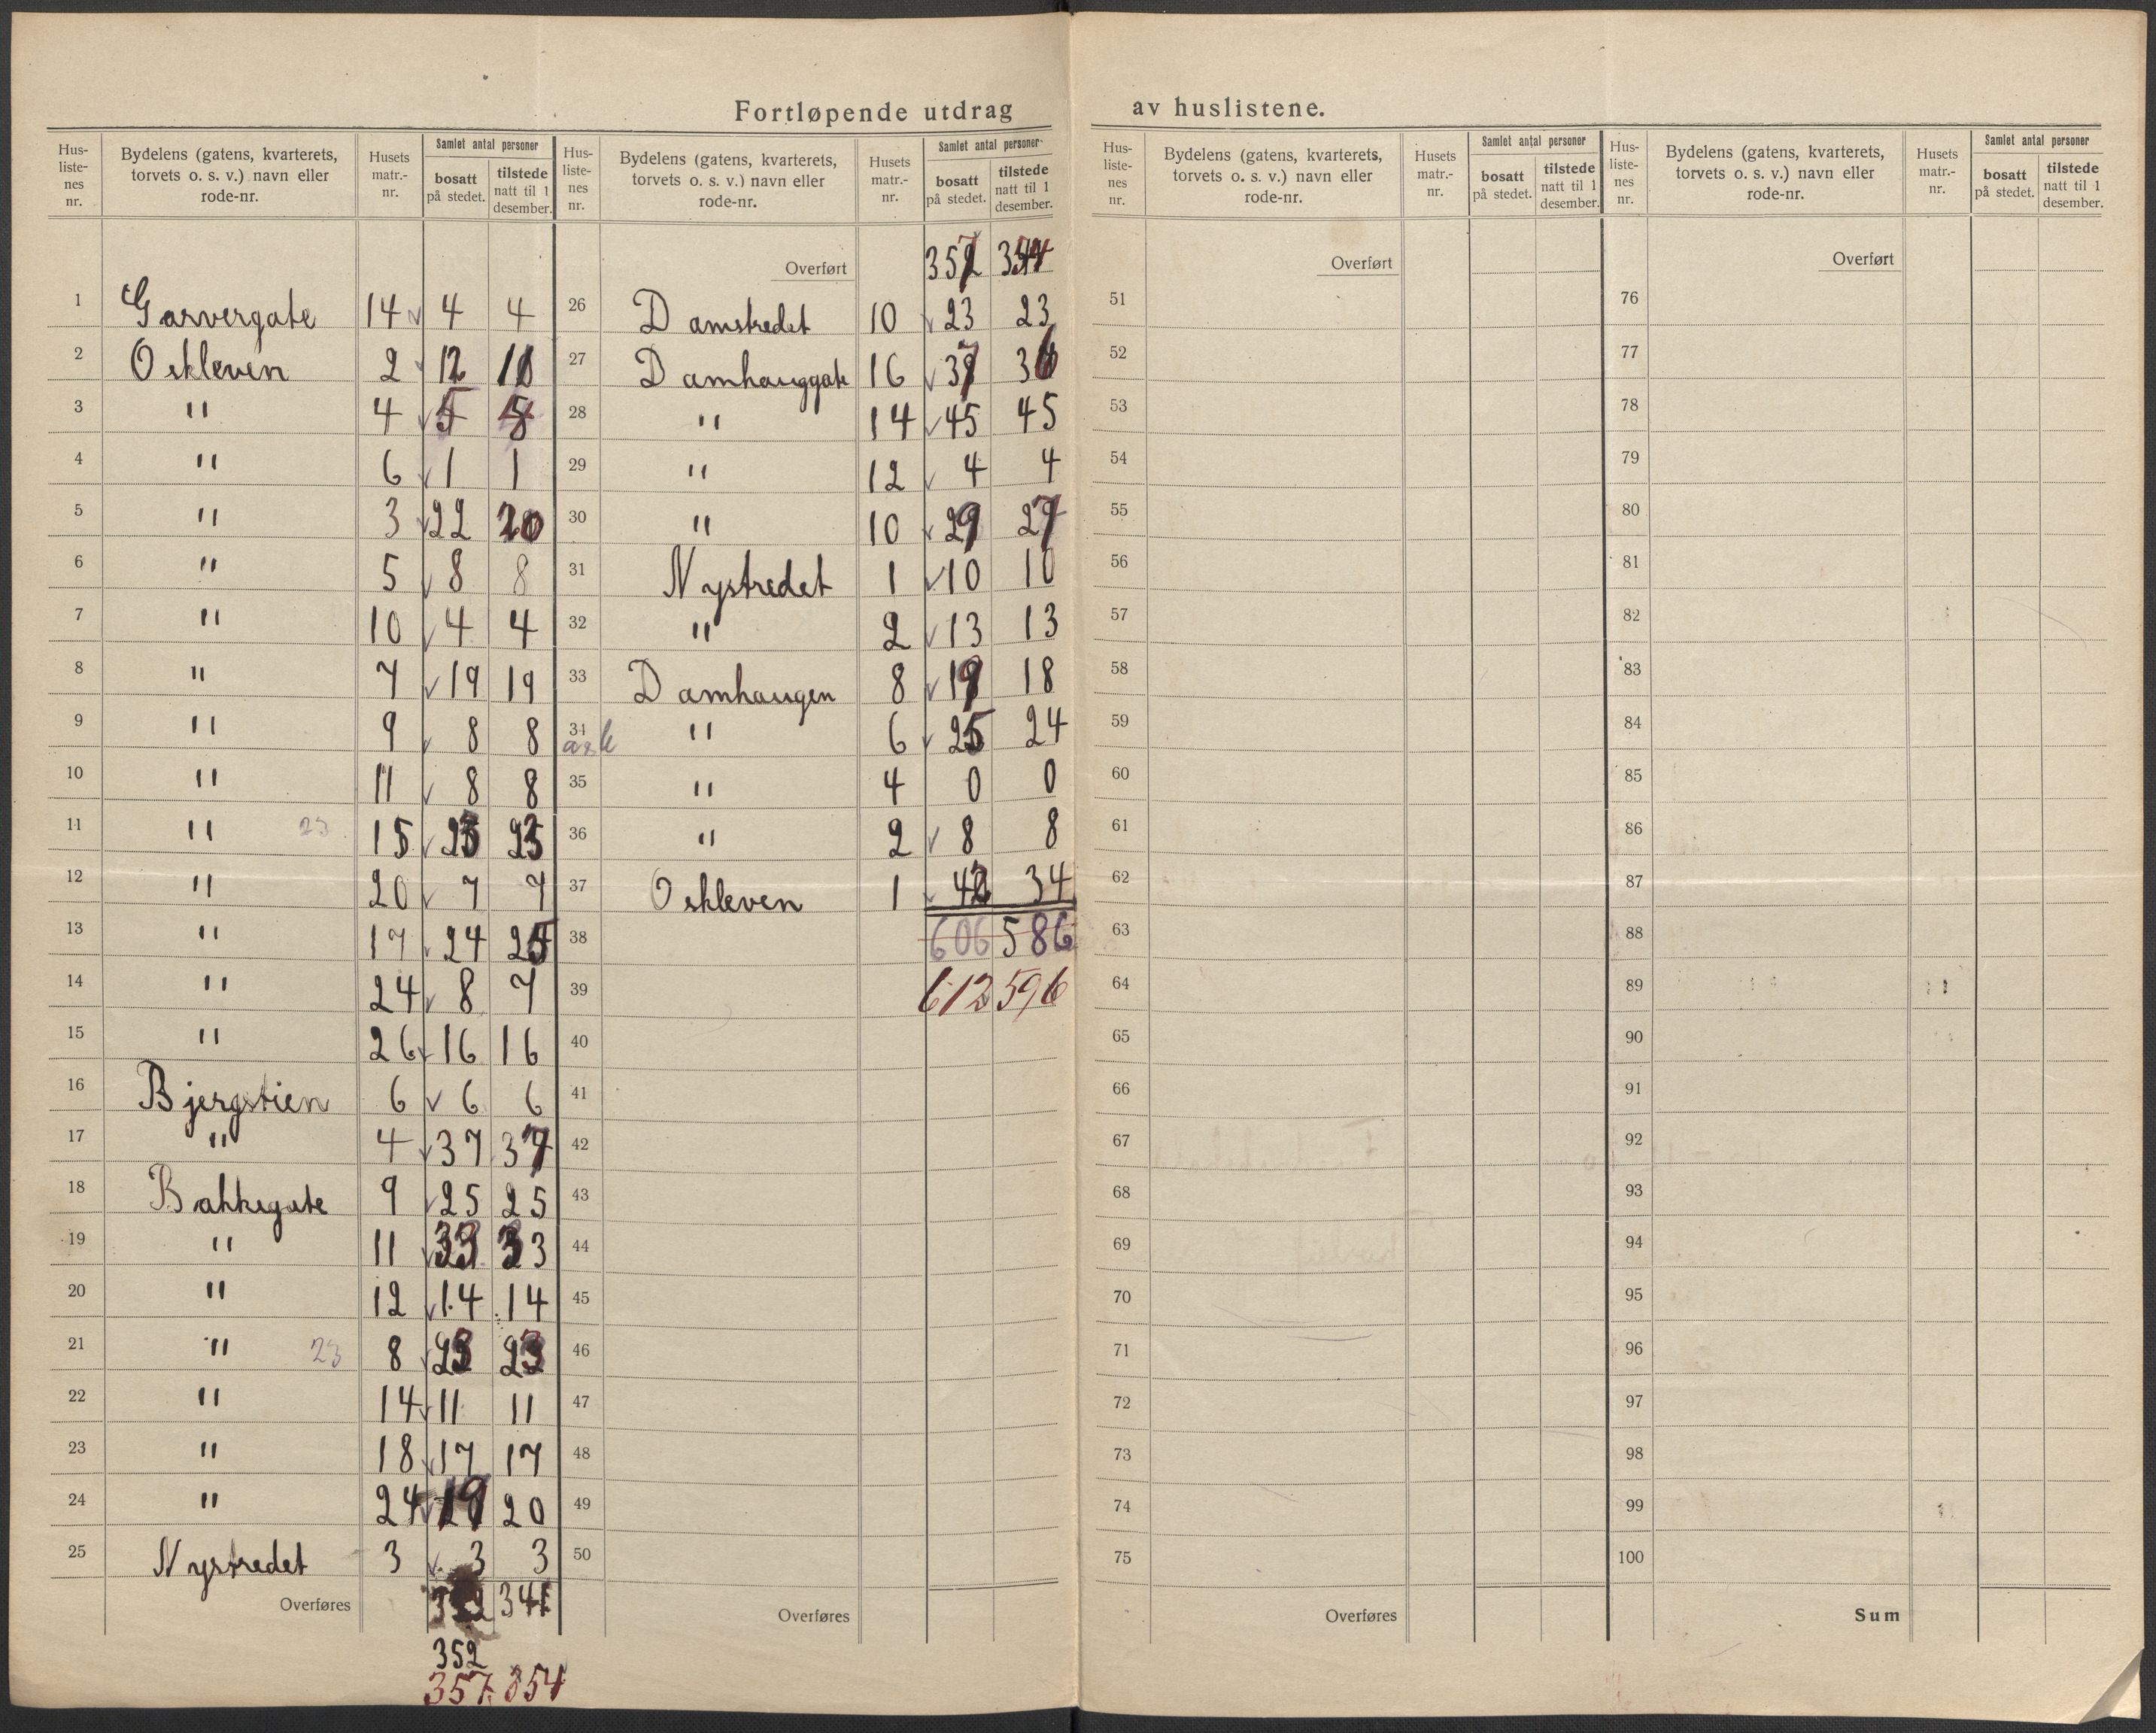 Fortløpende utdrag av huslistene.
Hus-listenes nr. | Bydelens (gatens, kvarterets, torvets o. s. v.) navn eller rode-nr. | Husets matr.-nr. | Samlet antal personer bosatt på stedet. | tilstede natt til 1 desember.
1 Garvergate 14 4 4
2 Oskleven 2 12
3 " 4 5
4 " 6 1 1
5 " 3 22 20
6 " 5 8 8
7 " 10 4 4
8 " 7 19 19
9 " 9 8 8
10 " 11 8 8
11 " 23 15 23 23
12 " 20 7 7
13 " 17 24
14 " 24 8 7
15 " 26 16 16
16 Bjergstien 6 6 6
17 " 4 37 37
18 Bakkegate 9 25 25
19 " 11 33 33
20 " 12 14 14
21 " 23 8 23 23
22 " 14 11 11
23 " 18 17 17
24 " 24 19 20
25 Nystredet 3 3 3
Overføres 341
352
357 354
Hus-listenes nr. | Bydelens (gatens, kvarterets, torvets o. s. v.) navn eller rode-nr. | Husets matr.-nr. | Samlet antal personer bosatt på stedet. | tilstede natt til 1 desember.
Overført 357 354
26 Damstredet 10 23 23
27 Damhauggate 16 37 36
28 " 14 45 45
29 " 12 4 4
30 " 10 29 27
31 Nystredet 1 10 10
32 " 2 13 13
33 Damhaugen 8 19 18
34 " 6 25 24
35 " 4 0 0
36 " 2 8 8
37 Oskleven 1 42 34
38 606 586
39 612 596
40
41
42
43
44
45
46
47
48
49
50
Overføres
Hus-listenes nr. | Bydelens (gatens, kvarterets, torvets o. s. v.) navn eller rode-nr. | Husets matr.-nr. | Samlet antal personer bosatt på stedet. | tilstede natt til 1 desember.
Overført
51
52
53
54
55
56
57
58
59
60
61
62
63
64
65
66
67
68
69
70
71
72
73
74
75
Overføres
Hus-listenes nr. | Bydelens (gatens, kvarterets, torvets o. s. v.) navn eller rode-nr. | Husets matr.-nr. | Samlet antal personer bosatt på stedet. | tilstede natt til 1 desember.
Overført
76
77
78
79
80
81
82
83
84
85
86
87
88
89
90
91
92
93
94
95
96
97
98
99
100
Sum